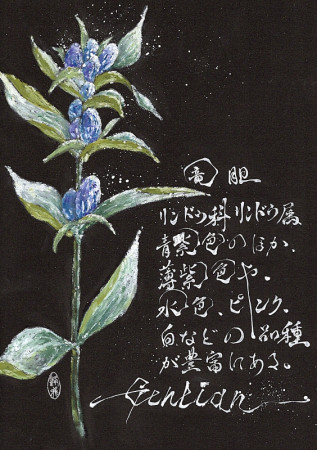 竜胆
リンドウ科リンドウ属
青紫色のほか、
薄紫色や、
水色、ピンク、
白などの品種
が豊富にある。
Gentian